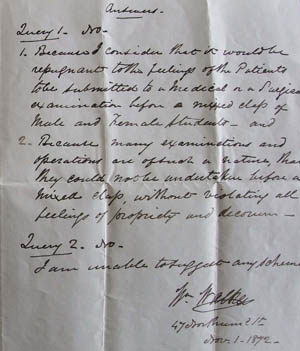 Answers -
Query 1. No -
1. Because I consider that it would be
repugnant to the feelings of the Patients
to be submitted to a Medical or a Surgical
examination before a mixed class of
Male and Female Students - and
2. Because many examinations and
operations are of such a nature that
they could not be undertaken before a
mixed class, without violating all
feelings of propriety and decorum -
Query 2. No -
I am unable to suggest any scheme
Wm Walker
47 Northumd. St
Nov. 1 - 1892 -